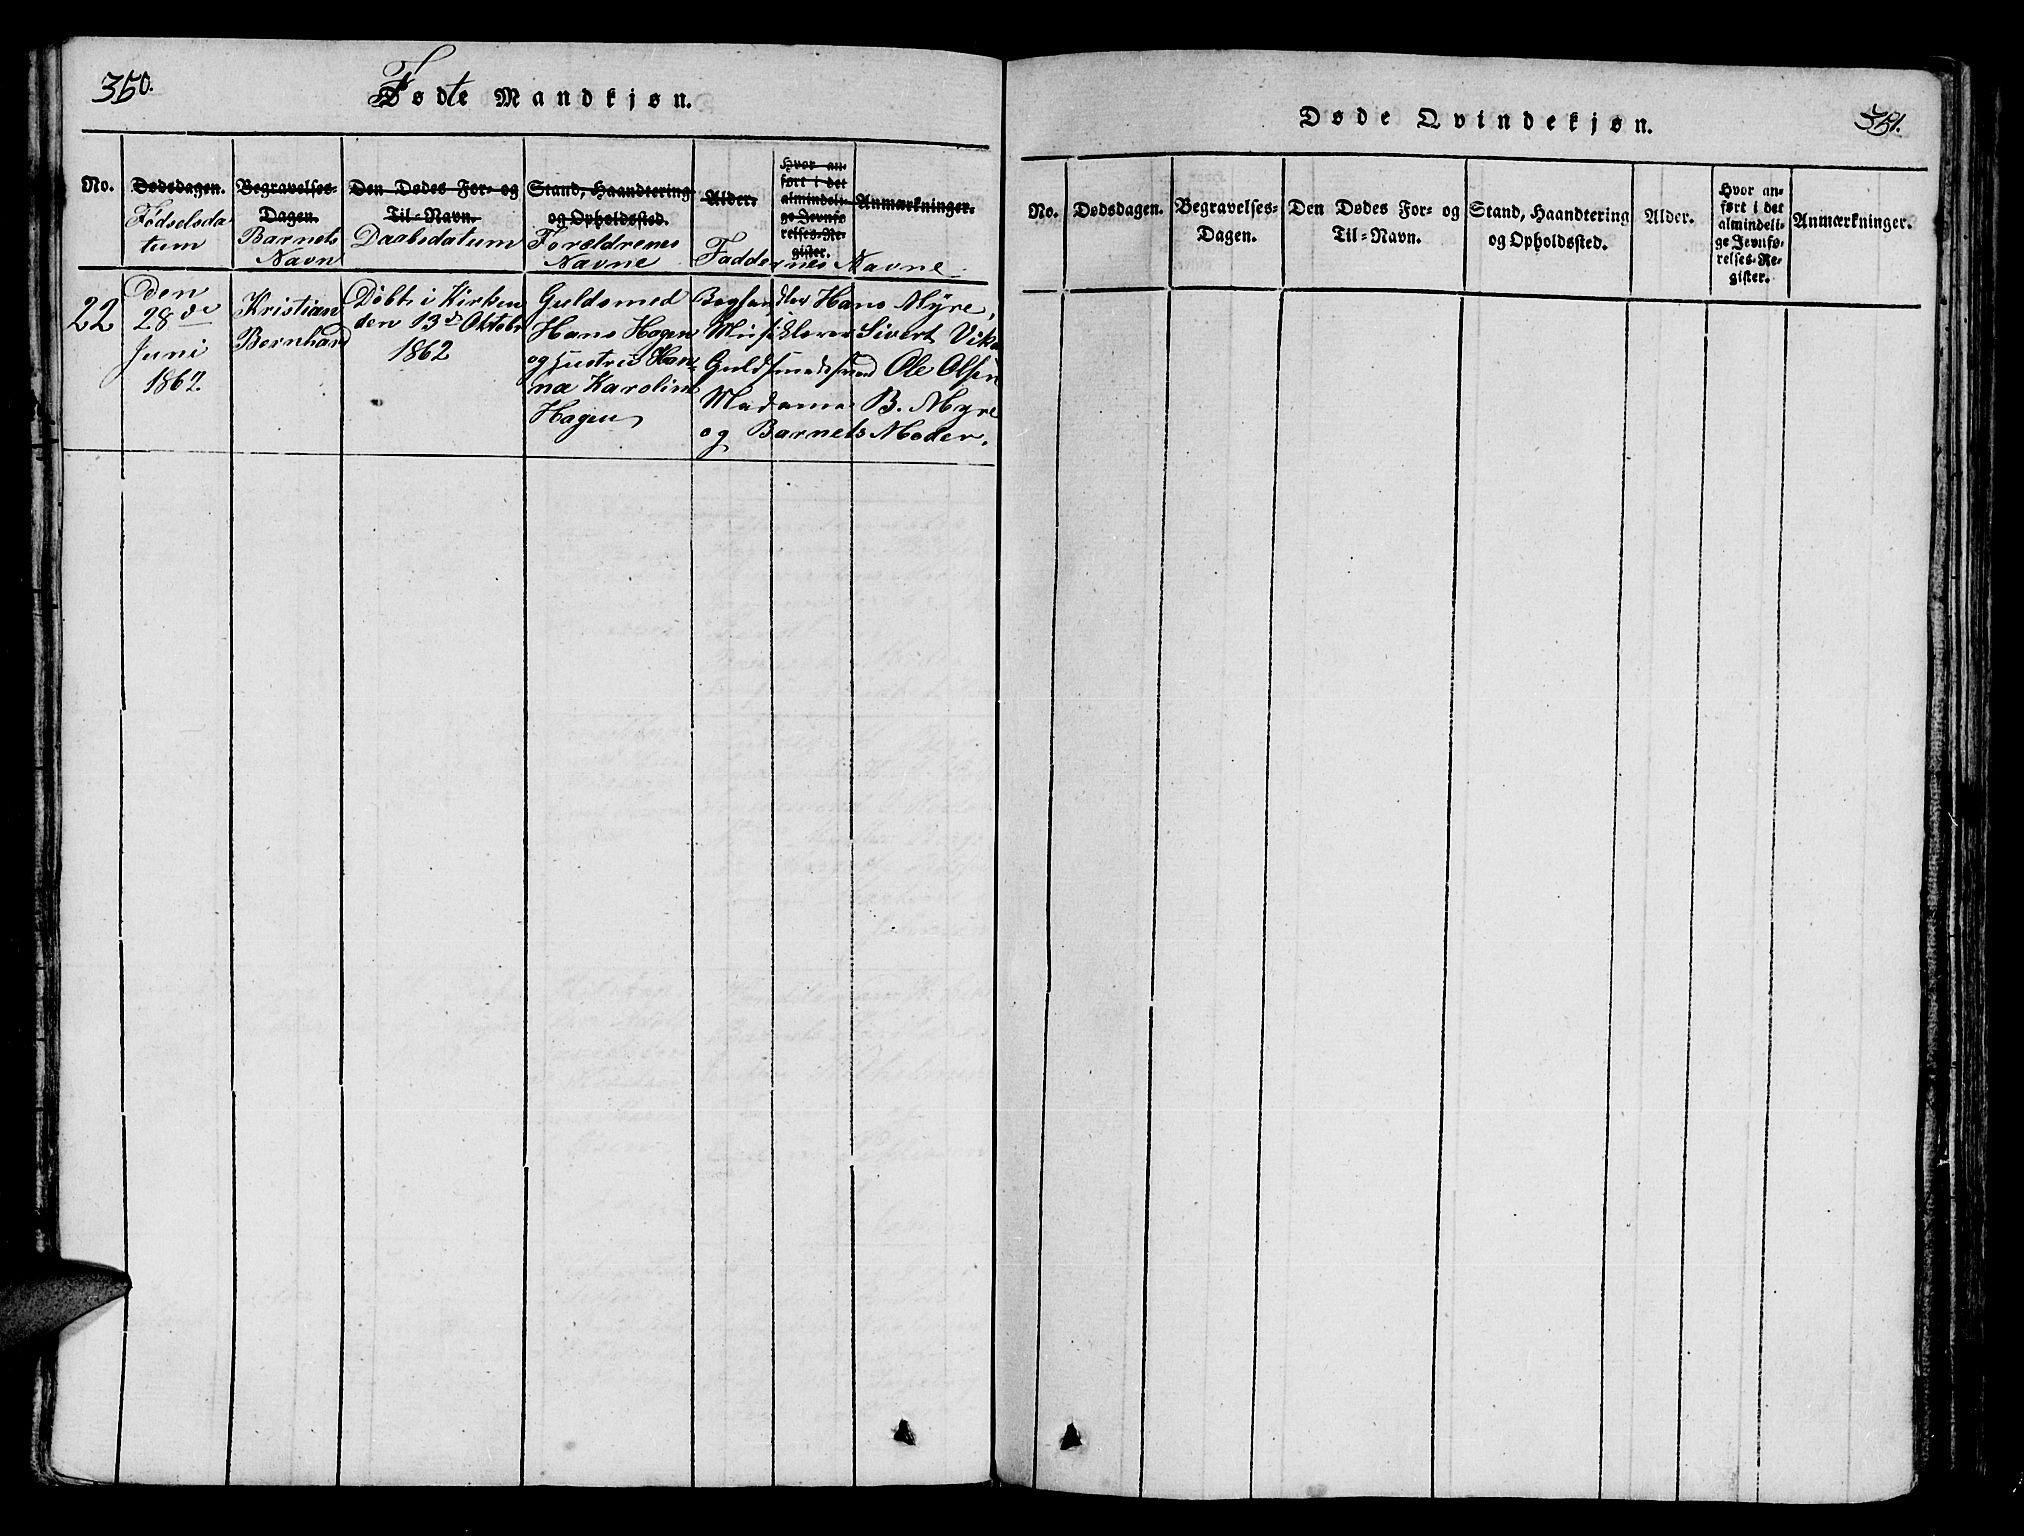 350.
Fødte Mandkjøn.
No.
Dødsdagen.
Fødselsda
tum
Begravelses-
Dagen.
Barnets
Navn
Den Dødes For- og
Til-Navn.
Daabsdatum
Stand, Haandtering
og Opholdssted.
Forældrenes
Navne
Alder.
Hvor an-
ført i det
almindeli-
ge Jevnfø
relses-Re-
gister.
Anmærkninger.
Faddernes Navne
22
Den
28de
Juni
1862.
Kristian
Bernhard
Döbt i Kirken
den 13de Oktobr
1862
Guldsmed
Hans Hagen
og Hustru Han-
na Karoline
Hagen
Hans Myre,
Sivert Vik
Ole Olsen
Madame B. Myre
og Barnets Moder.
Døde Qvindekjøn.
351.
No.
Dødsdagen.
Begravelses-
Dagen.
Den Dødes For- og
Til-Navn.
Stand, Haandtering
og Opholdssted.
Alder.
Hvor an-
ført i det
almindeli-
ge Jevnfø-
relses-Re-
gister.
Anmærkninger.